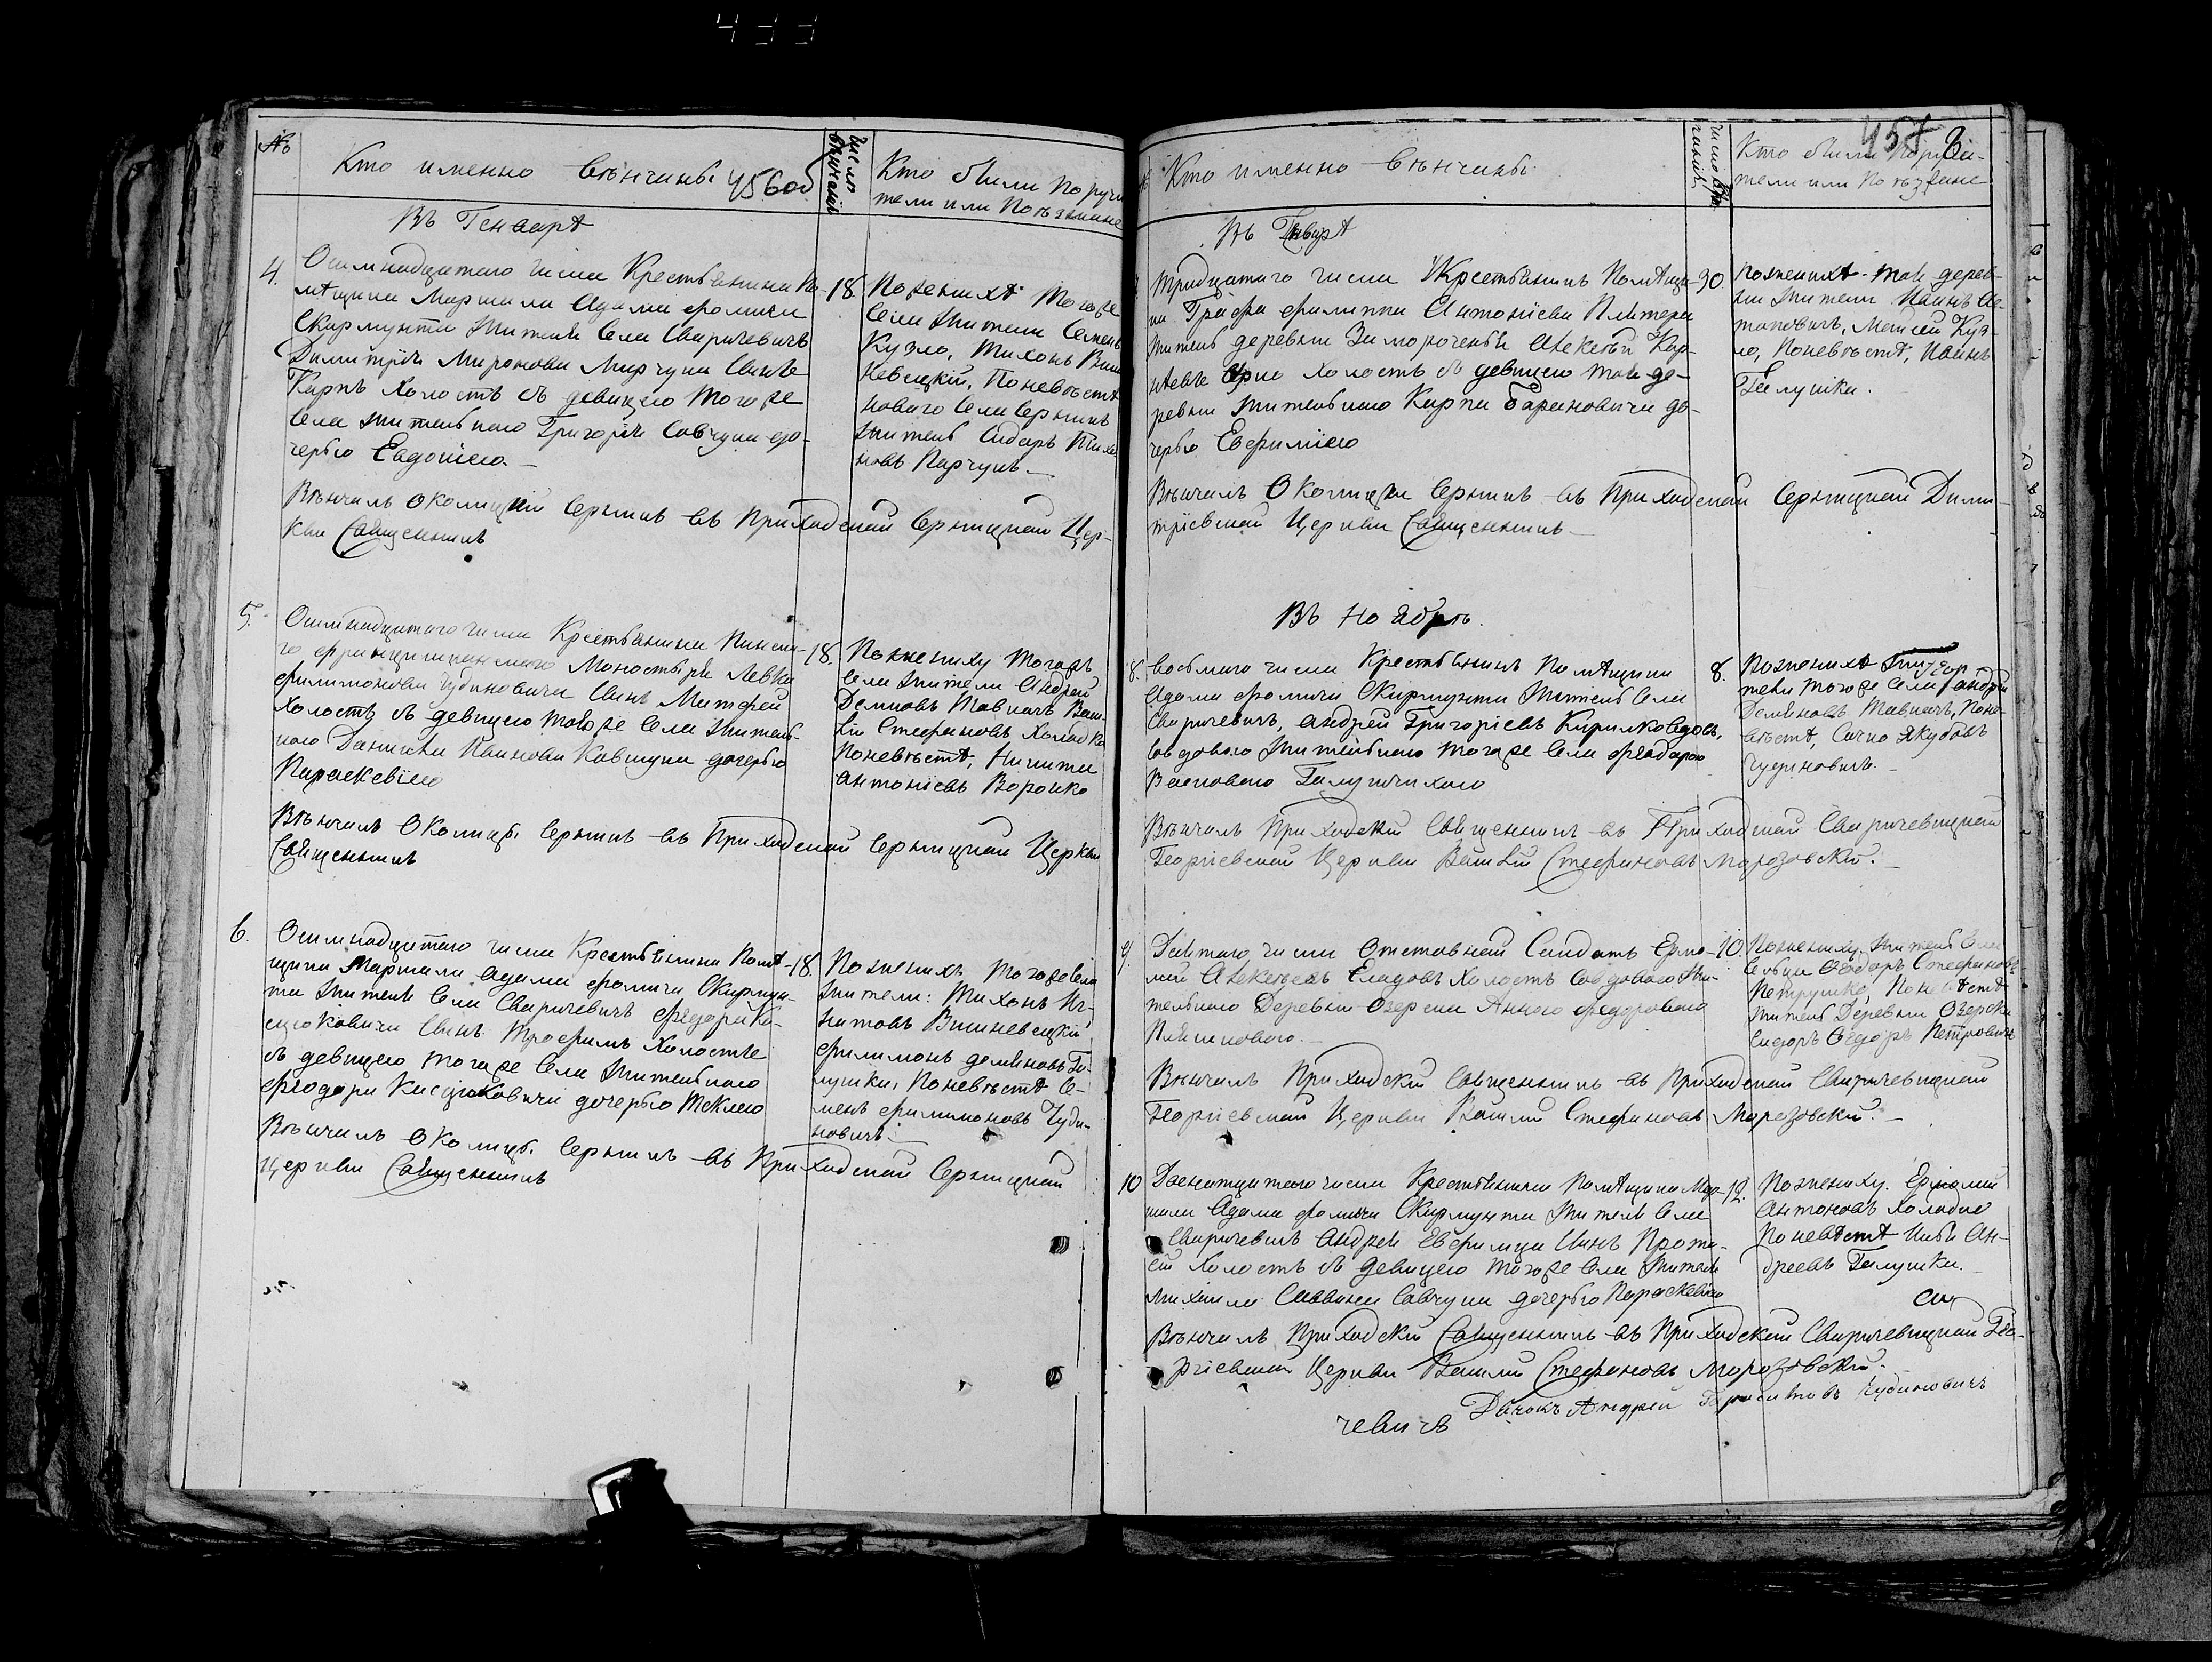 433
№
Кто именно вѣнчаны
456об
Число вѣнчанія
Кто были поручи
тели или поѣзжане
Въ Генварѣ
4.
Осимнадцатаго числа Крестьянина По-
мѣщика Маршала Адама Фомича
Скирмунта жителя села Сваричевичъ
Димитрія Миронова Марчука Сынъ
Карпъ холостъ съ девицею тогоже
села жительного Григорія Савчука до-
черью Евдокіею.
18.
По женихѣ тогоже
села жители Семенъ
Кузло, Тихонъ Виш
невецкій, По невѣстѣ
новаго села Серникъ
житель Сидоръ Тихо
новъ Парчукъ.
Вѣнчалъ Околицкій Серникъ въ Приходской Серницкой Цер-
кви Священникъ
5.
Осимнадцатаго числа Крестьянина Пинска-
го Францишканского Монастыря Левка
Филимонова Чудиновича Сынъ Матфей
холостъ съ девицею тогоже села житель-
ного Данилы Иванова Ковшука дочерью
Параскевіею
18.
По жениху тогожъ
села жители Андрей
Демковъ Мавпичъ Васи-
лій Стефановъ Холодко
По невѣстѣ, Никита
Антоніевъ Воронко
Вѣнчалъ Околицы Серникъ въ Приходской Серницкой Церкви
Священникъ
6.
Осимнадцатаго числа Крестьянина Помѣ-
щика Маршала Адама Фомича Скирмун-
та жителя села Сваричевичъ Феодора Ка-
сцюковича Сынъ Трофимъ холостъ
съ девицею тогоже села жительного
Феодора Касцюковича дочерью Теклею
18.
По женихѣ тогоже села
жители: Тихонъ Иг-
натовъ Вишневецкій,
Филимонъ Демяновъ Га-
лушка, По невѣстѣ Се-
менъ Филимоновъ Чуди-
новичъ.
Вѣнчалъ Околицы Серникъ въ Приходской Серницкой
Церкви Священникъ
Кто именно вѣнчаны
число
Кто были поручи-
тели или поѣзжане
457
Въ Генварѣ
Тридцатаго числа Крестьянинъ Помѣщи-
ка Графа Филиппа Антоніева Плятера
житель деревни Заморочення Алексѣй Кор-
нѣевъ холостъ съ девицею той де-
ревни жительного Карпа Барановича до-
черью Евфиміею
30.
По женихѣ той дерев-
ни жители Иванъ Ос-
таповичъ, Моисей Куз-
ло, По невѣстѣ, Иванъ
Галушка.
Вѣнчалъ Околицы Серникъ въ Приходской Серницкой Дими-
тріевской Церкви Священникъ
Въ Ноябрѣ.
8.
Восьмаго числа Крестьянинъ Помѣщика
Адама Фомича Скирмунта житель села
Сваричевичъ, Андрей Григоріевъ Кирилко вдовъ,
со вдовою жительною тогоже села Феодорою
Васковою Галушчихою
8.
По женихѣ
тели тогоже села Андрей
Демяновъ Мавпичъ, По не-
вѣстѣ, Сачко Якубовъ
Чудиновичъ.
Вѣнчалъ Приходскій Священникъ въ Приходской Сваричевицкой
Георгіевской Церкви Василій Стефановъ Морозовскій.
9.
Десятаго числа Отставной Солдатъ Ермо-
лай Алексѣевъ холостъ со вдовою жи-
тельною Деревни Озерска Анною Федоровою
10.
По жениху житель села
Феодоръ Стефановъ
Петрушко, По невѣстѣ
житель Деревни Озерска
Сидоръ Феодоръ Петровичъ
Вѣнчалъ Приходскій Священникъ въ Приходской Сваричевицкой
Георгіевской Церкви Василій Стефановъ Морозовскій.
10
Двенатцатаго числа Крестьянина Помѣщика Мар-
шала Адама Фомича Скирмунта жителя села
Сваричевичъ Андрея Евфимца Сынъ Прота-
сій холостъ съ девицею тогоже села жителя
Михаила Саввина Савчука дочерью Параскевіею
12.
По жениху. Ермолай
Антоновъ Холодко
По невѣстѣ Ан-
дреевъ Галушка.
Вѣнчалъ Приходскій Священникъ въ Приходской Сваричевицкой Гео-
ргіевской Церкви Василій Стефановъ Морозовскій.
Дьячокъ Андрей Чудиновичъ
чевичъ